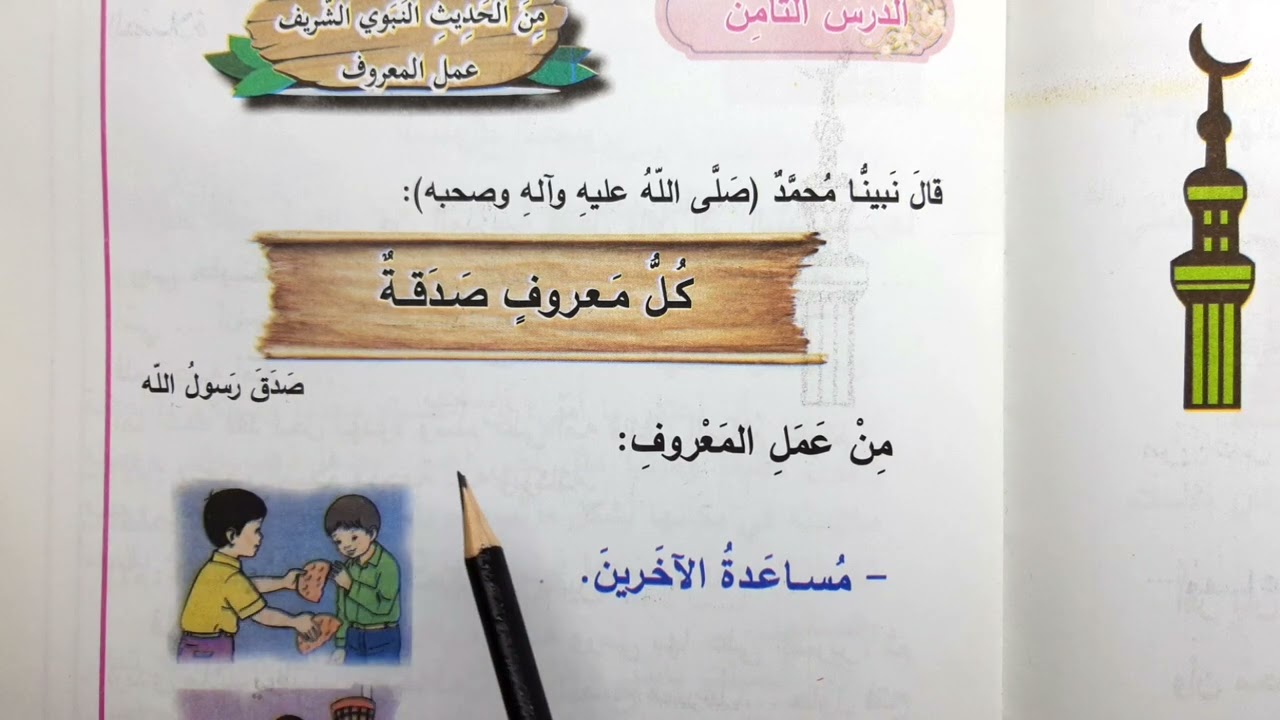 الدرس الثامن
مِنَ الحَدِيثِ النَبَوي الشَّريف
عمل المعروف
قالَ نَبينُّا مُحمَّدٌ (صَلَّى اللّهُ عليهِ وآلهِ وصحبه):
كُلُّ مَعروفٍ صَدَقةٌ
صَدَقَ رَسولُ اللّه
مِنْ عَمَلِ المَعْروفِ:
- مُساعَدةُ الآخَرينَ.